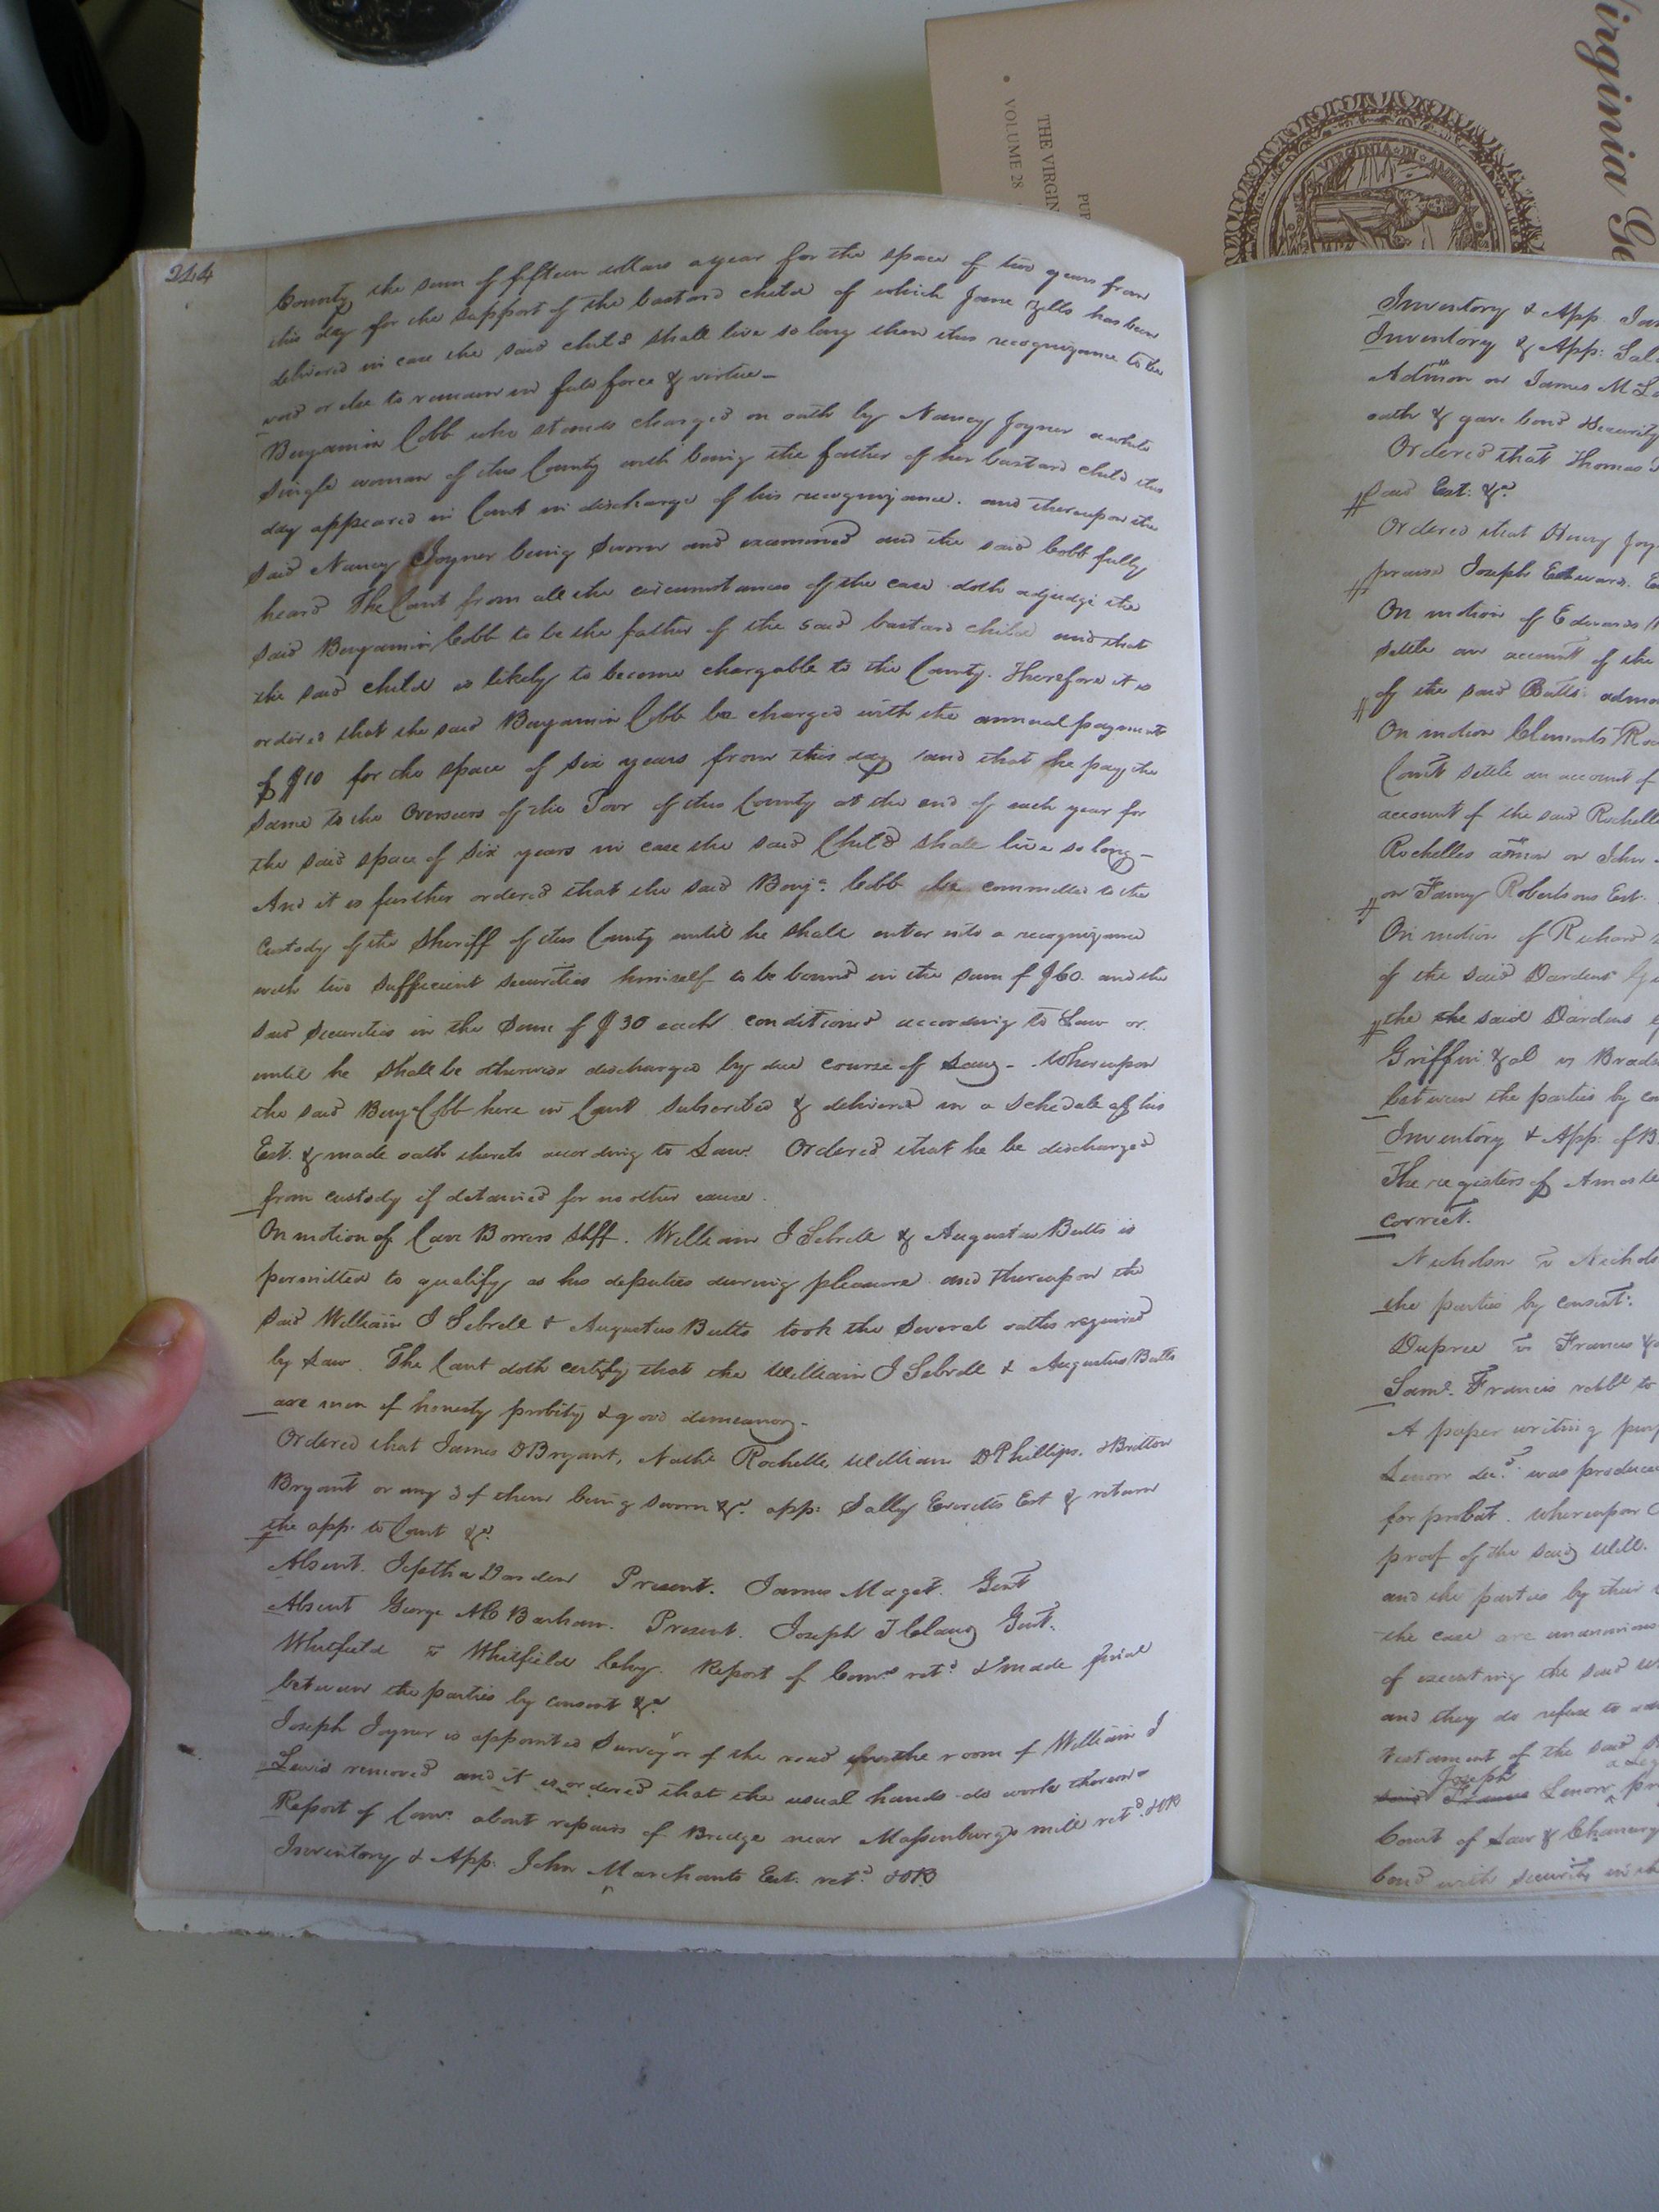 Virginia Ge
THE VIRGIN
VOLUME 28
VIRGINIA IN AMER
244
County the sum of fifteen dollars a year for the space of two years from
this day for the support of the bastard child of which Jane has been
delivered in case the said child shall live so long then this recognizance to be
void or else to remain in full force & virtue -
Benjamin Cobb who stands charged on oath by Nancy Joyner a white
single woman of this County with being the father of her bastard child this
day appeared in Court in discharge of his recognizance. and thereupon the
said Nancy Joyner being sworn and examined and the said Cobb fully
heard The Court from all the circumstances of the case doth adjudge the
said Benjamin Cobb to be the father of the said bastard child and that
the said child is likely to become chargable to the County. Therefore it is
ordered that the said Benjamin Cobb be charged with the annual payments
of $10 for the space of six years from this day and that he pay the
same to the Overseers of the Poor of this County at the end of each year for
the said space of six years in case the said Child shall live so long -
And it is further ordered that the said Benja. Cobb be committed to the
Custody of the Sheriff of this County until he shall enter into a recognizance
with two sufficient securities himself to be bound in the sum of $60. and the
said securities in the sum of $30 each conditioned according to Law or
until he shall be otherwise discharged by due course of Law - Whereupon
the said Benja Cobb here in Court subscribed & delivered in a schedule of his
Est. & made oath thereto according to Law. Ordered that he be discharged
from custody if detained for no other cause.
On motion of Carr Bowers Shff. William J Sebrell & Augustus Butts is
permitted to qualify as his deputies during pleasure and thereupon the
said William J Sebrell & Augustus Butts took the several oaths required
by Law. The Court doth certify that the William J Sebrell & Augustus Butts
are men of honesty probity & good demeanor -
Ordered that James D Bryant, Nathl Rochelle William D Phillips, & Britton
Bryant or any 3 of them being sworn &c. app: Sally Everetts Est & return
the app. to Court &c.
Absent. Jeptha Darden Present. James Maget. Gent
Absent George Barham. Present. Joseph T Claud Gent.
Whitfield vs Whitfield Chy. Report of Comrs retd & made final
between the parties by consent &c
Joseph Joyner is appointed Surveyor of the road in the room of William J
Lewis removed and it is ordered that the usual hands do work thereon
Report of Comrs about repairs of Bridge near Massenburgs mill retd. & OR
Inventory & App. John Marchants Est. retd. & OR
Inventory & App.
Inventory & App:
Admon on James M
oath & gave bond Security
Ordered that Thomas
said Est. &c
Ordered that Henry
praise Joseph Edward
On motion of Edwards
settle an account of the
of the said Butts admo
On motion Clements
Court settle an account of
account of the said Rochelle
Rochelles admon on John
on Fanny Robertsons Est.
On motion of Richard
of the said Dardens
the the said Dardens
Griffin & al vs
between the parties by
Inventory & App. of B
The registers of
correct.
Nicholson vs Nichols
the parties by consent.
Dupree vs Francis
Saml. Francis to
A paper writing purp
decd. was produced
for probat. whereupon
proof of the said Will.
and the parties by their
the case are unanimous
of executing the said
and they do refuse to
testament of the said
Joseph
Court of Law & Chancery
bond with security in